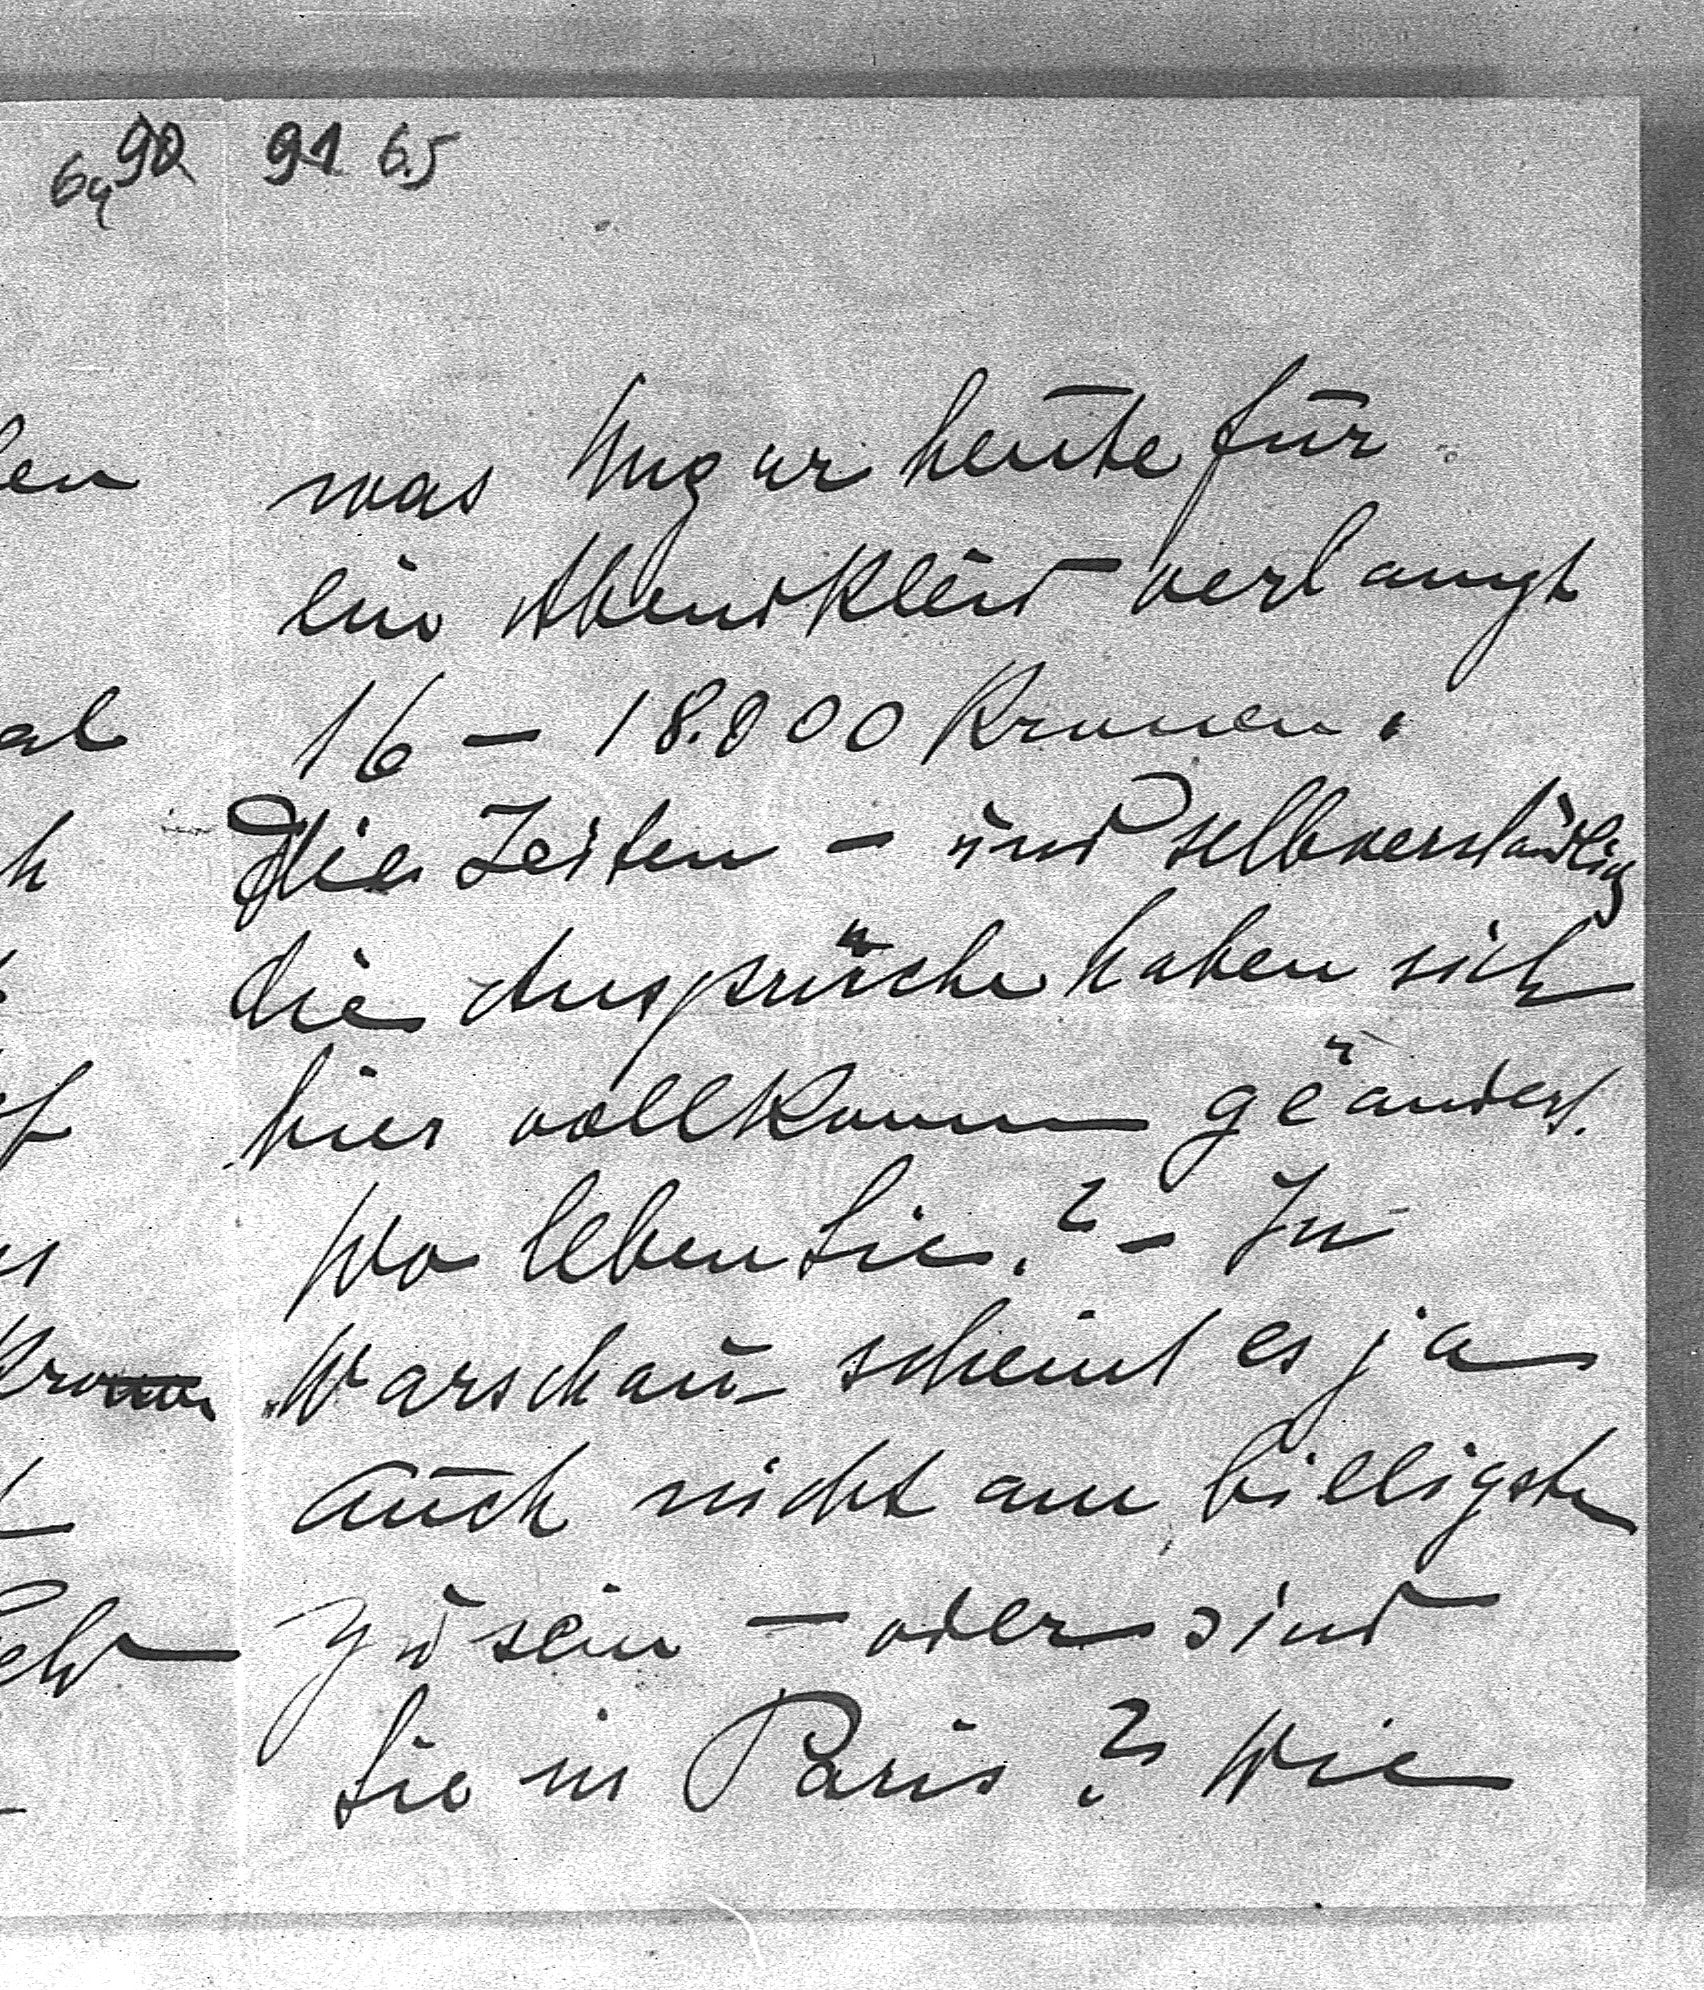 64 90 91 65
was Ungar heute für
ein Abendkleid verlangt
16 – 18.000 Kronen.
Die Zeiten – und selbverständlig
die Ansprüche haben sich
hier vollkomm geändert.
Wo leben Sie? – In
Warschau scheint es ja
auch nicht am billigsten
zu sein – oder sind
Sie in Paris? Wie